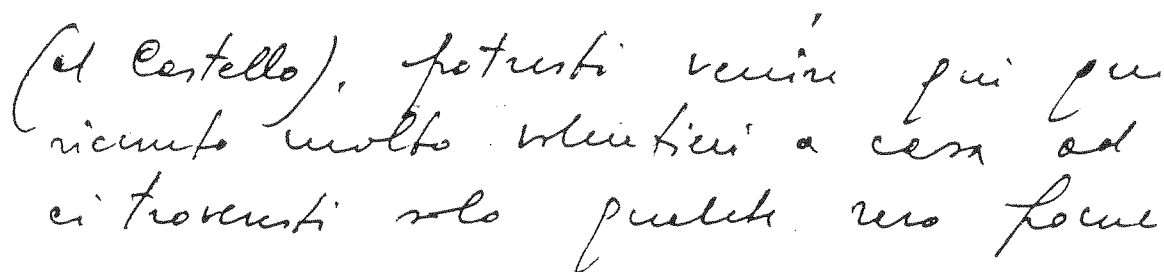 (al Castello), potresti venire qui
ricevuto molto volentieri a casa ad
ci troveresti solo qualche raro